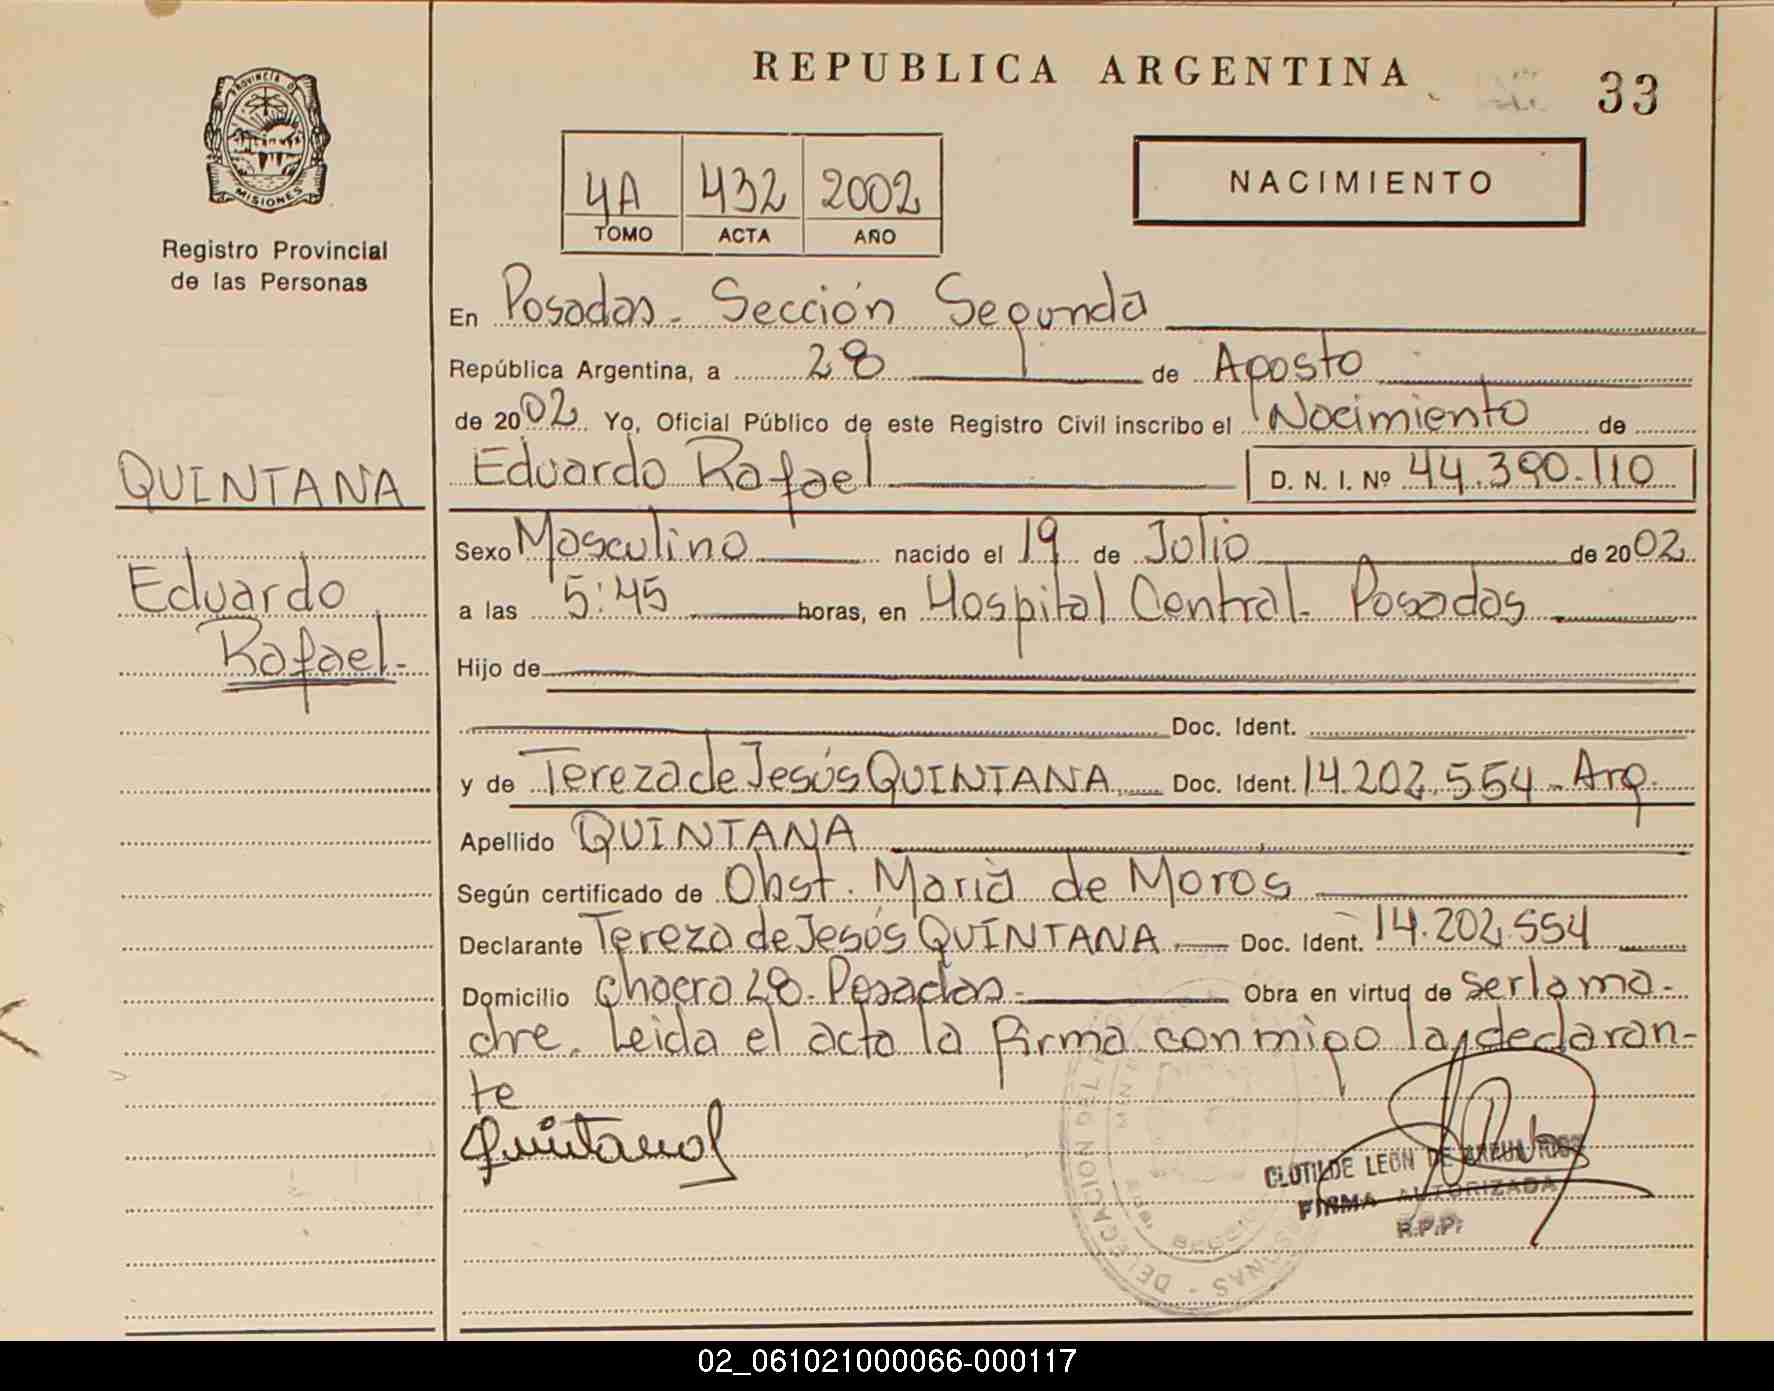 REPUBLICA ARGENTINA
33
PROVINCIA DE
MISIONES
Registro Provincial
de las Personas
4A 432 2002
TOMO ACTA AÑO
NACIMIENTO
En Posadas - Sección Segunda
República Argentina, a 28 de Agosto
de 2002 Yo, Oficial Público de este Registro Civil inscribo el Nacimiento de
QUINTANA
Eduardo Rafael D. N. I. Nº 44.390.110
Sexo Masculino nacido el 19 de Julio de 2002
Eduardo
a las 5:45 horas, en Hospital Central - Posadas
Rafael.-
Hijo de
Doc. Ident.
y de Tereza de Jesús QUINTANA Doc. Ident. 14.202.554 - Arg.
Apellido QUINTANA
Según certificado de Obst. María de Moros
Declarante Tereza de Jesús QUINTANA Doc. Ident. 14.202.554
Domicilio Chacra 28 - Posadas - Obra en virtud de ser la ma-
dre. Leida el acta la firma conmigo la declaran-
te
Quintana
CLOTILDE LEON DE
FIRMA AUTORIZADA
R.P.P.
DELEGACION DEL
02_061021000066-000117